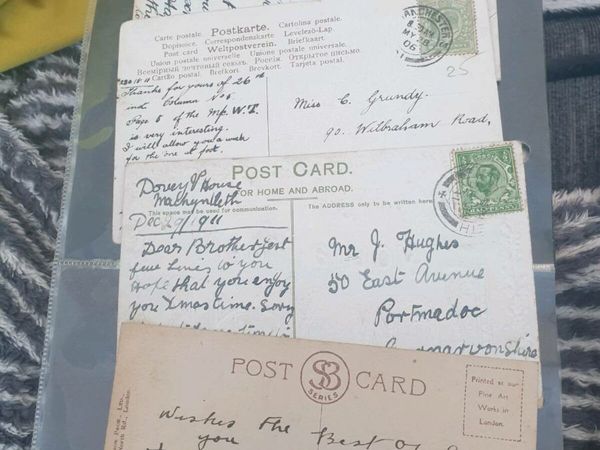 Carte postale. Postkarte. Cartolina postale.
Dopisnice. Correspondenzkarte. Levelező-Lap.
Post card Weltpostverein. Briefkaart.
Union postale universelle. Unione postale universale.
Всемірный почтовый союзъ. Россія. Открытое письмо.
Cartão postal. Brefkort. Brevkort. Tarjeta postal.
MANCHESTER
MY 28
06
25
Thanks for yours of 26th
inst Column
Page 5 of the
is very interesting.
I will allow you a week
for the one at foot.
Miss C. Grundy.
90. Wilbraham Road,
POST CARD.
FOR HOME AND ABROAD.
This space may be used for communication.
The ADDRESS only to be written here.
Dovey House
Machynlleth
Dec 1911
Dear Brother Just
few Lines to you
Hope that you enjoy
you Xmas time. Sory
Mr J. Hughes
50 East Avenue
Portmadoc
Carnarvonshire
POST CARD
SB
SERIES
Printed at our
Fine Art
Works in
London.
Wishes The Best Of
you